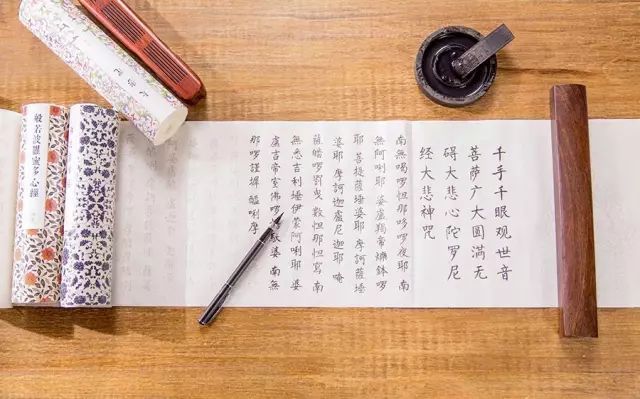 千手千眼观世音
菩萨广大圆满无
碍大悲心陀罗尼
经大悲神咒
南無喝啰怛那哆啰夜耶南
無阿唎耶 婆盧羯帝爍鉢啰
耶菩提薩埵婆耶 摩訶薩埵
婆耶 摩訶迦盧尼迦耶 唵
薩皤啰罰曳 数怛那怛寫 南
無悉吉利埵伊蒙阿唎耶 婆
盧吉帝室佛啰 馱婆 南無
那啰謹墀 醯唎摩
般若波羅蜜多心經